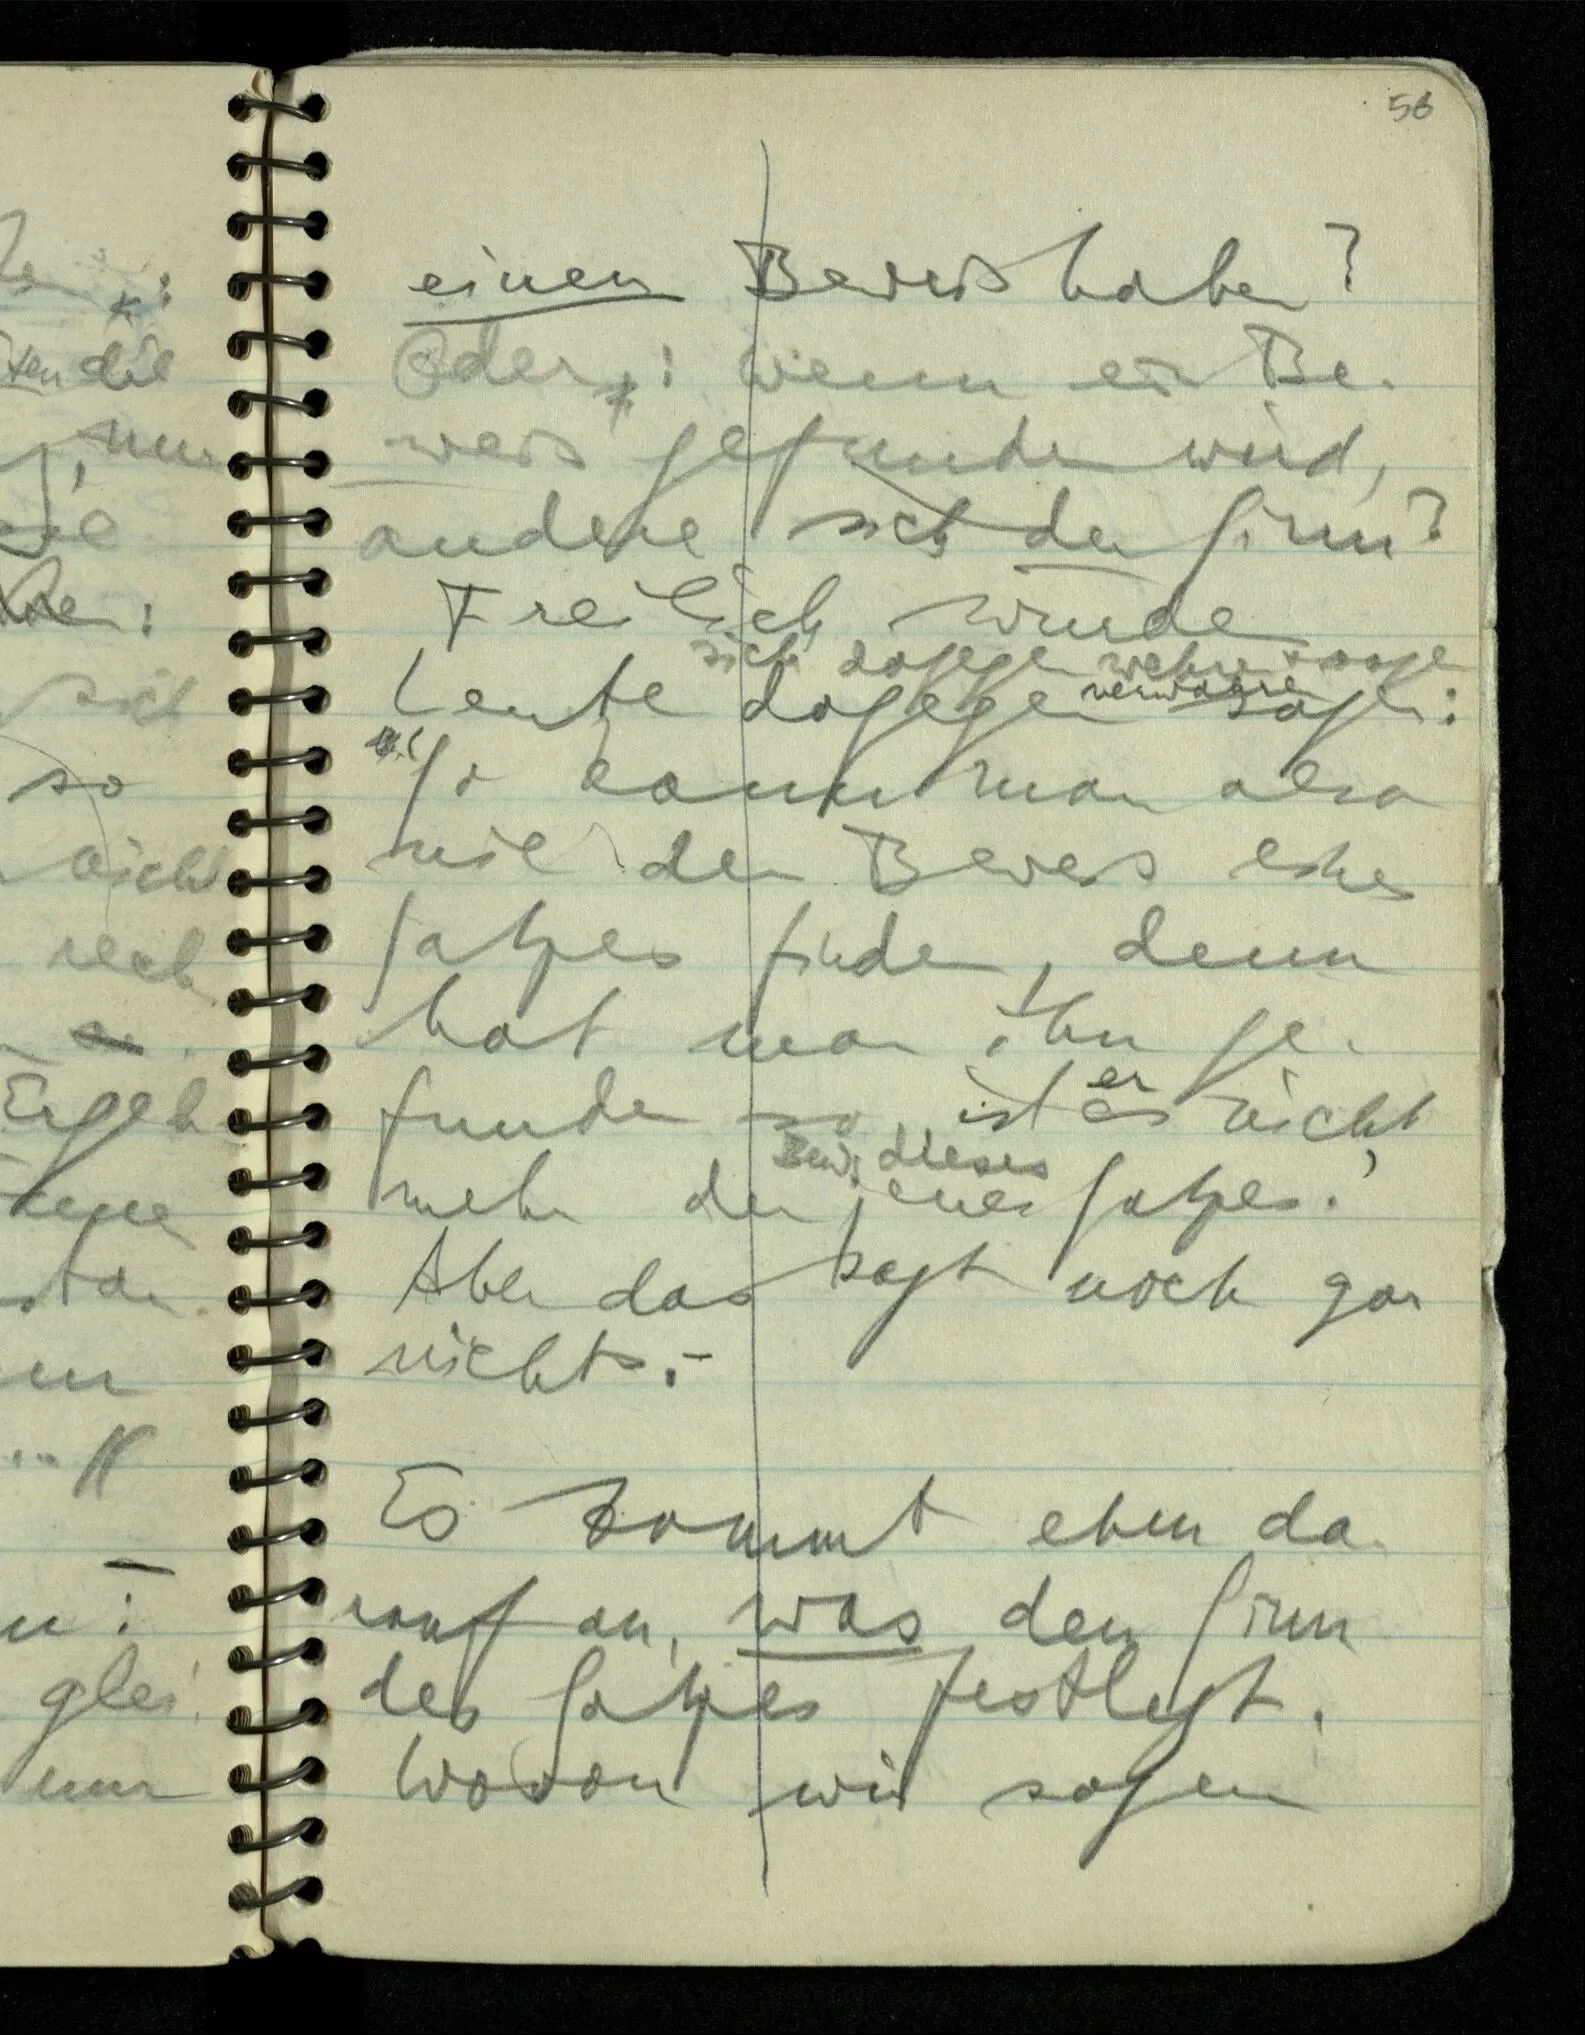 56
einen Beweis haben?
Oder: wenn ein Be-
weis gefunden wird,
andere sich der Sinn?
Freilich würde
sich dagegen wehren + sagen
Leute dagegen verwahren sagen:
"So kann man also
nie den Beweis eines
Satzes finden, denn
hat man ihn ge-
er
funden so ist es nicht
Bew. dieses
mehr der jenes Satzes."
Aber das sagt noch gar
nichts. –
Es kommt eben da-
rauf an, was den Sinn
des Satzes festlegt.
Wovon wir sagen
:
die
nur
sich
so
nicht
rech
Ergeb
glei
nur